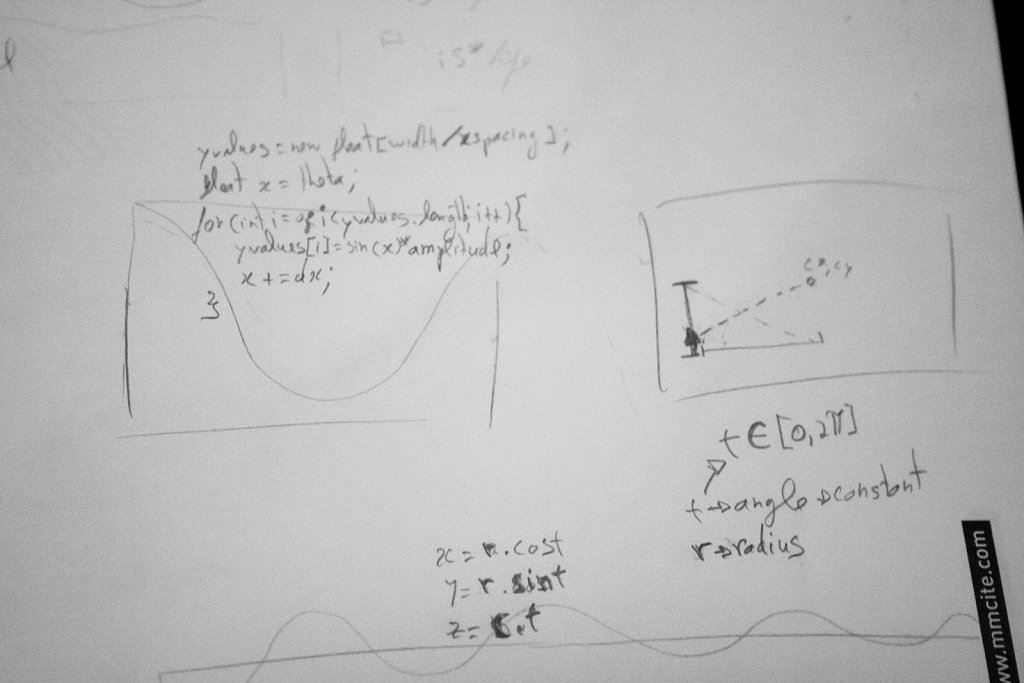 is*
yvalues = new float[width/xspacing];
float x = theta;
for (int i = 0; i < yvalues.length; i++) {
yvalues[i] = sin(x)*amplitude;
x += dx;
}
cx, cy
t ∈ [0, 2π]
t → angle → constant
r → radius
x = r . cost
y = r . sint
z = c . t
www.mmcite.com